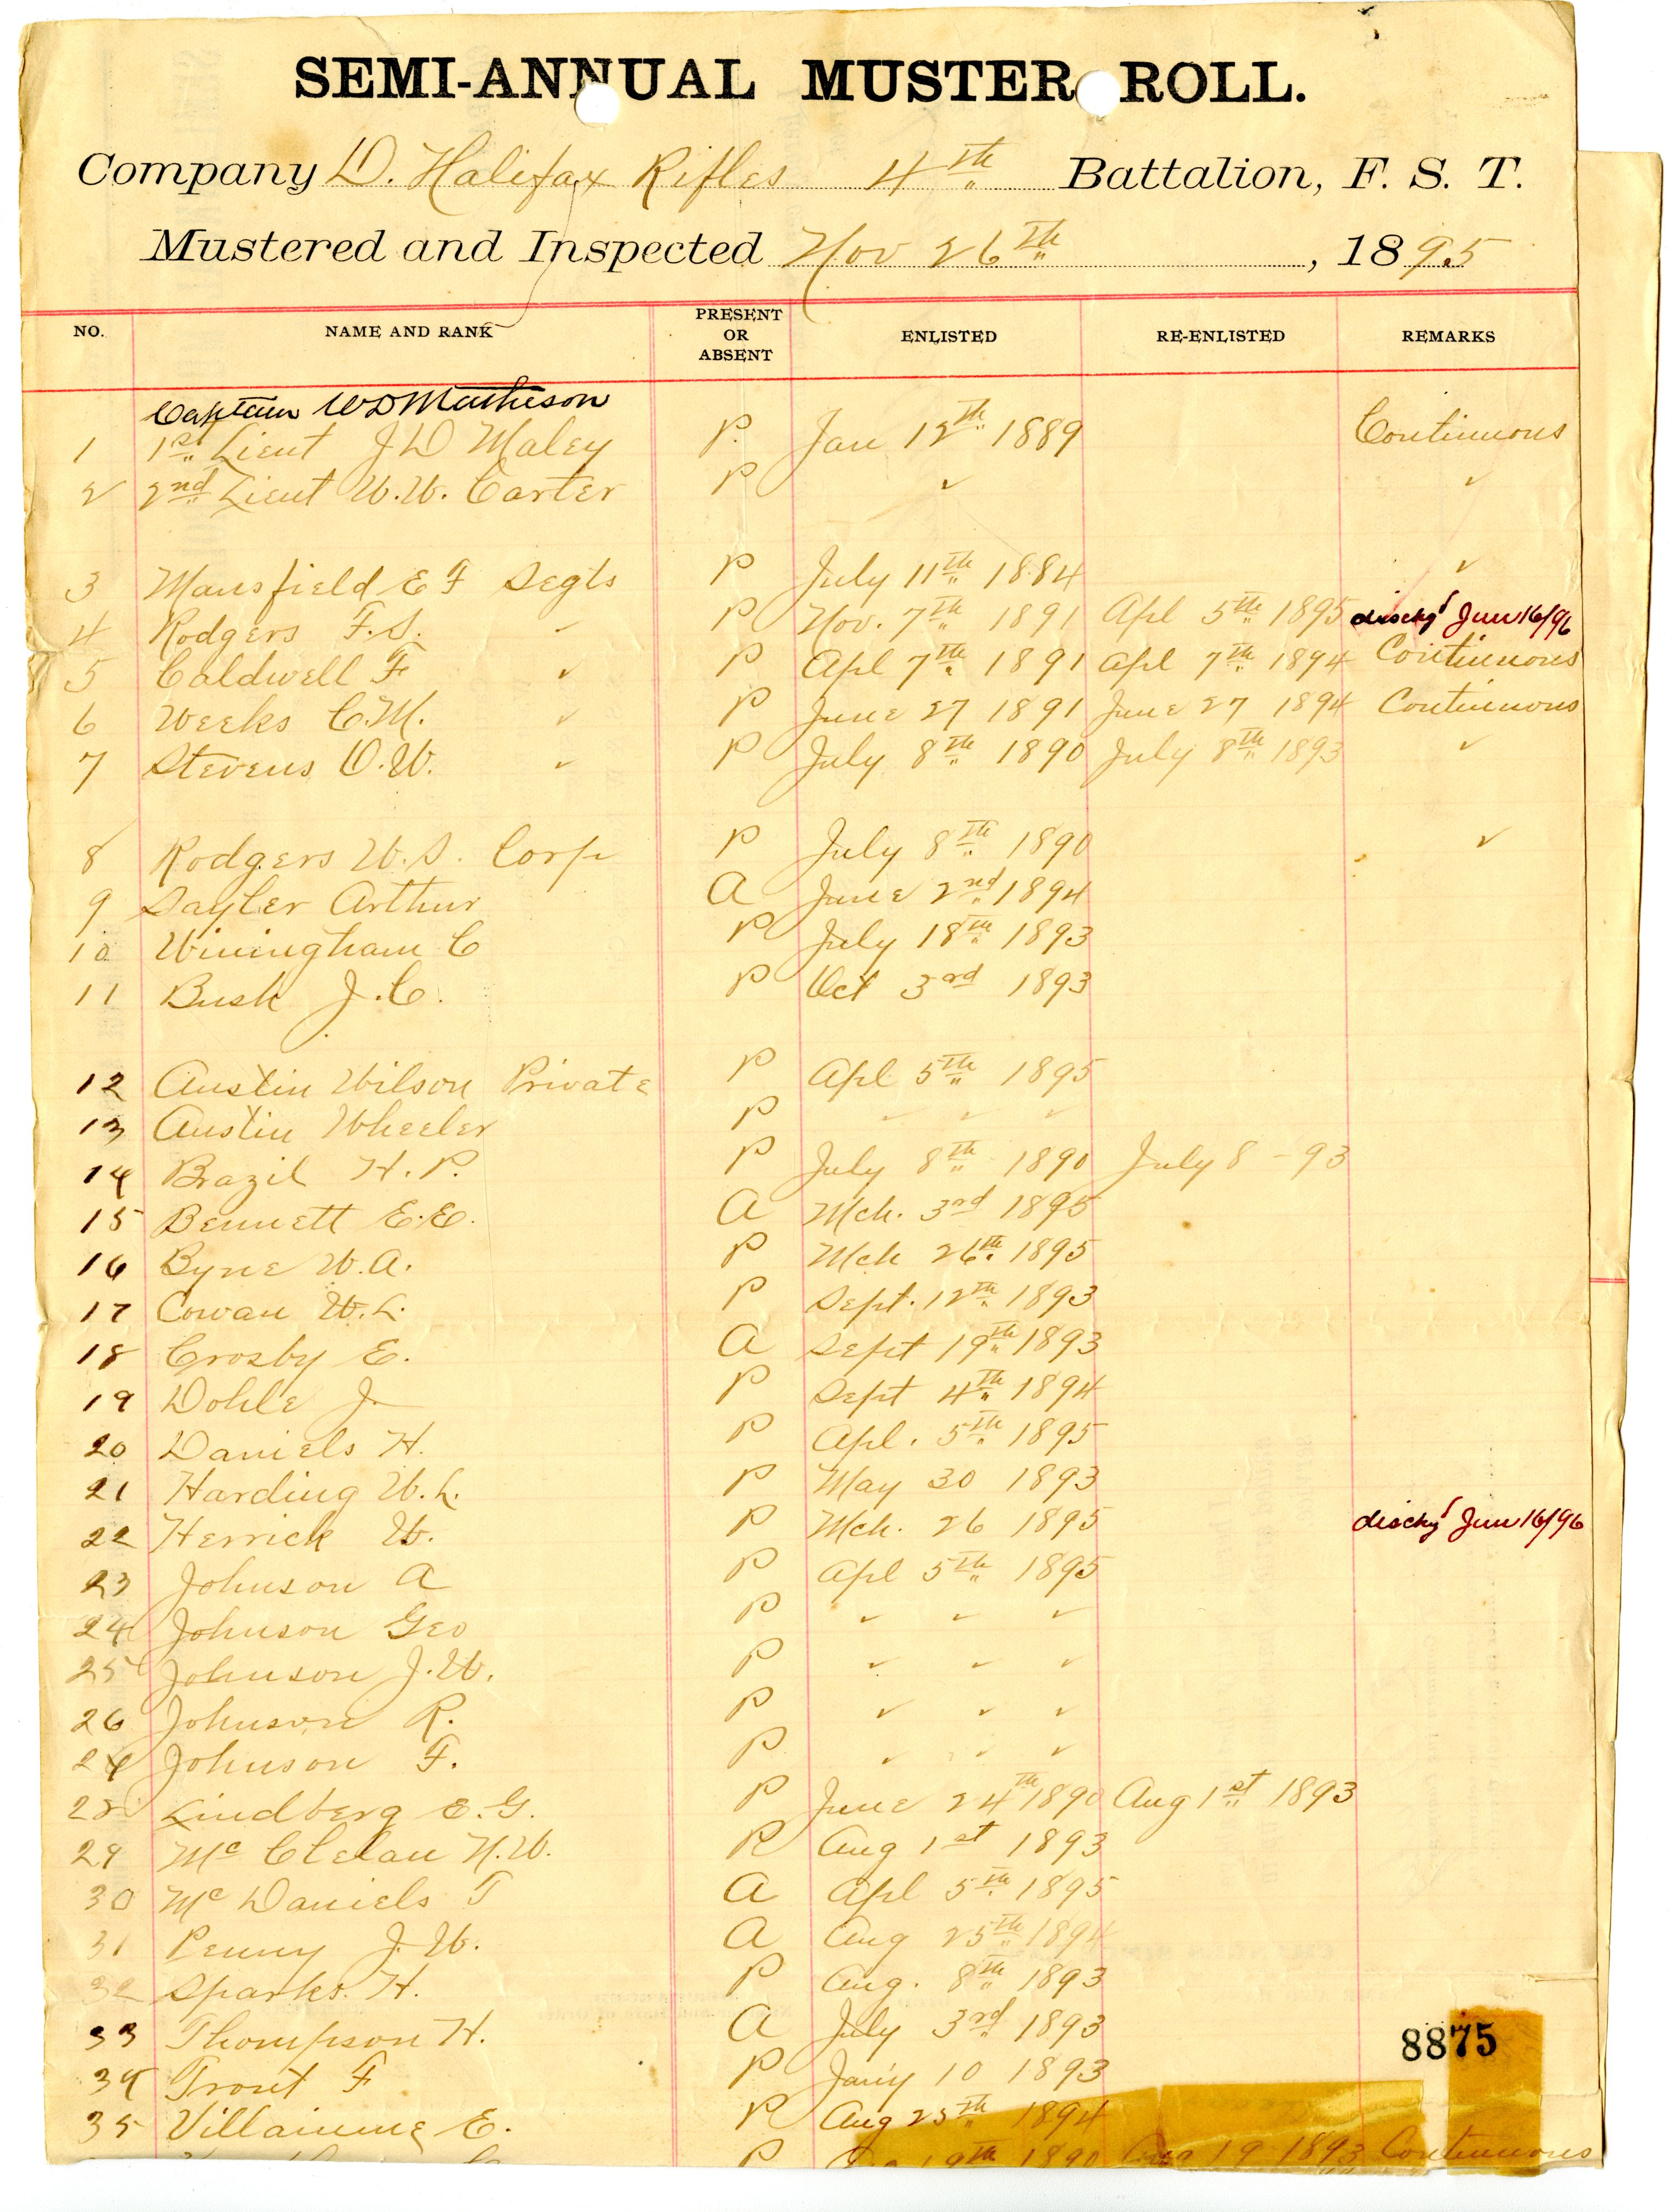 SEMI-ANNUAL MUSTER ROLL.
Company D. Halifax Rifles 4th Battalion, F. S. T.
Mustered and Inspected Nov 26th, 1895
NO. NAME AND RANK PRESENT OR ABSENT ENLISTED RE-ENLISTED REMARKS
Captain W D Matheson
1 1st Lieut J D Maley P. Jan 12th 1889 Continuous
2 2nd Lieut W.W. Carter P ✓ ✓
3 Mansfield E F Segts P July 11th 1884 ✓
4 Rodgers F.S. " P Nov. 7th 1891 Apl 5th 1895 dischgd Jun 16/96
5 Caldwell F ✓ P Apl 7th 1891 Apl 7th 1894 Continuous
6 Weeks C.M. ✓ P June 27 1891 June 27 1894 Continuous
7 Stevens O.W. ✓ P July 8th 1890 July 8th 1893 ✓
8 Rodgers W.S. Corp P July 8th 1890 ✓
9 Sayler Arthur A June 2nd 1894
10 Winingham C P July 18th 1893
11 Bush J.C. P Oct 3rd 1893
12 Austin Wilson Private P Apl 5th 1895
13 Austin Wheeler P ✓ ✓ ✓
14 Brazil H.P. P July 8th 1890 July 8 - 93
15 Bennett E.E. A Mch. 3rd 1895
16 Byne W.A. P Mch 26th. 1895
17 Cowan W.L. P Sept. 12th 1893
18 Crosby E. A Sept 19th 1893
19 Dohle J. P Sept 4th 1894
20 Daniels H. P Apl. 5th 1895
21 Harding W.L. P May 30 1893
22 Herrick W. P Mch. 26 1895 dischgd Jun 16/96
23 Johnson A P Apl 5th 1895
24 Johnson Geo P ✓ ✓ ✓
25 Johnson J.W. P ✓ ✓ ✓
26 Johnson R. P ✓ ✓ ✓
Johnson F. P ✓ ✓ ✓
28 Lindberg E.G. P June 24th 1890 Aug 1st 1893
29 Mc Clelan N.W. P Aug 1st 1893
30 Mc Daniels T A Apl 5th 1895
31 Penny J.W. A Aug 25th 1894
32 Sparks. H. P Aug. 8th 1893
33 Thompson H. A July 3rd 1893
34 Trout F P Jan'y 10 1893
35 Villaiume E. P Aug 25th 1894
P 19th 1890 19 1893 Continuous
8875